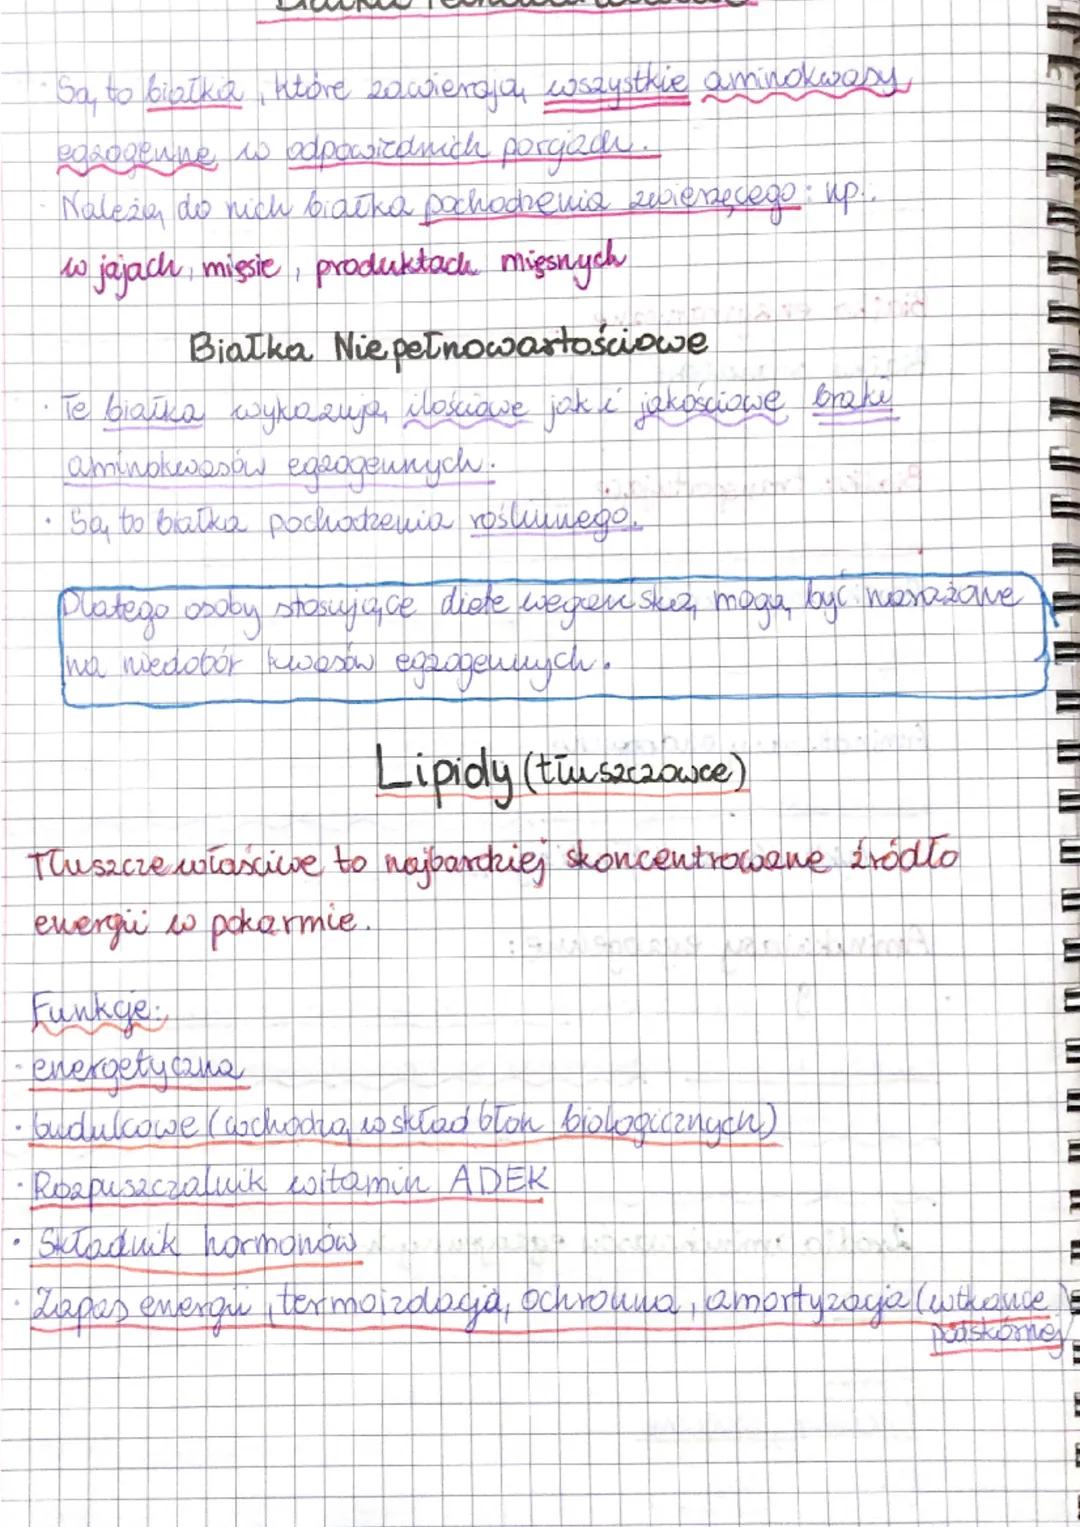 Białka Pełnowartościowe
· Są to białka, które zawierają wszystkie aminokwasy
egzogenne w odpowiednich porcjach.
· Należą do nich białka pochodzenia zwierzęcego: np.:
w jajach, mięsie, produktach mięsnych
Białka Niepełnowartościowe
· Te białka wykazują ilościowe jak i jakościowe braki
aminokwasów egzogennych.
· Są to białka pochodzenia roślinnego.
Dlatego osoby stosujące diete wegańską mogą być narażone
na niedobór kwasów egzogennych.
Lipidy (tłuszczowce)
Tłuszcze właściwe to najbardziej skoncentrowane źródło
energii w pokarmie.
Funkcje:
· energetyczna
· budulcowe (wchodzą w skład błon biologicznych)
· Rozpuszczalnik witamin ADEK
· Składnik hormonów
· Zapas energii, termoizolacja, ochronna, amortyzacja (w tkance
podskórnej)